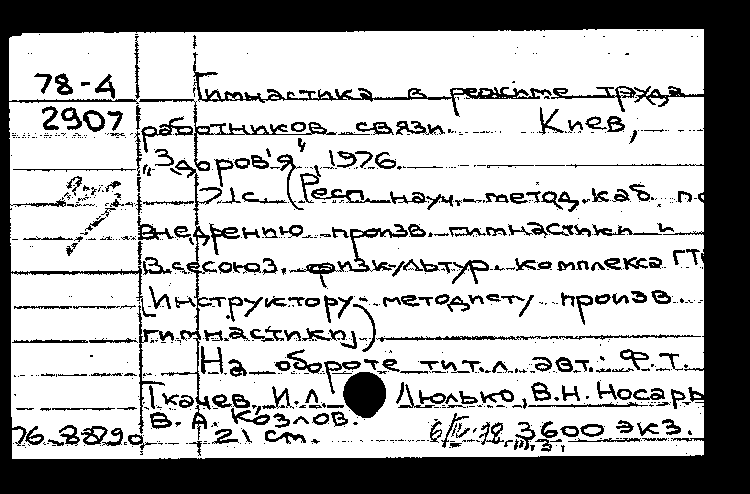 78-4 Гимнастика в режиме труда
2907 работников связи. Киев,
„Здоров'я", 1976.
71с. (Респ. науч.-метод. каб. по
внедрению произв. гимнастики и
Всесоюз. физкультур. комплекса ГТО
[Инструктору-методисту произв.
гимнастики]).
На обороте тит.л. авт.: Ф.Т.
Ткачев, И.Л. Люлько, В.Н. Носарь
В.А. Козлов.
76-88790 21 см. 6/IV-78 3600 экз.